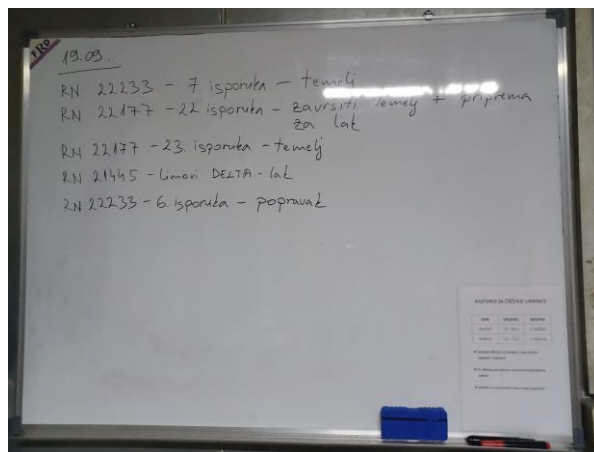 PRO
19.09.
RN 22233 - 7. isporuka - temelj
RN 22177 - 22 isporuka - završiti temelj + priprema
za lak
RN 22177 - 23. isporuka - temelj
RN 21445 - limovi DELTA - lak
RN 22233 - 6. isporuka - popravak
RASPORED ZA ČIŠĆENJE LAKIRNICE